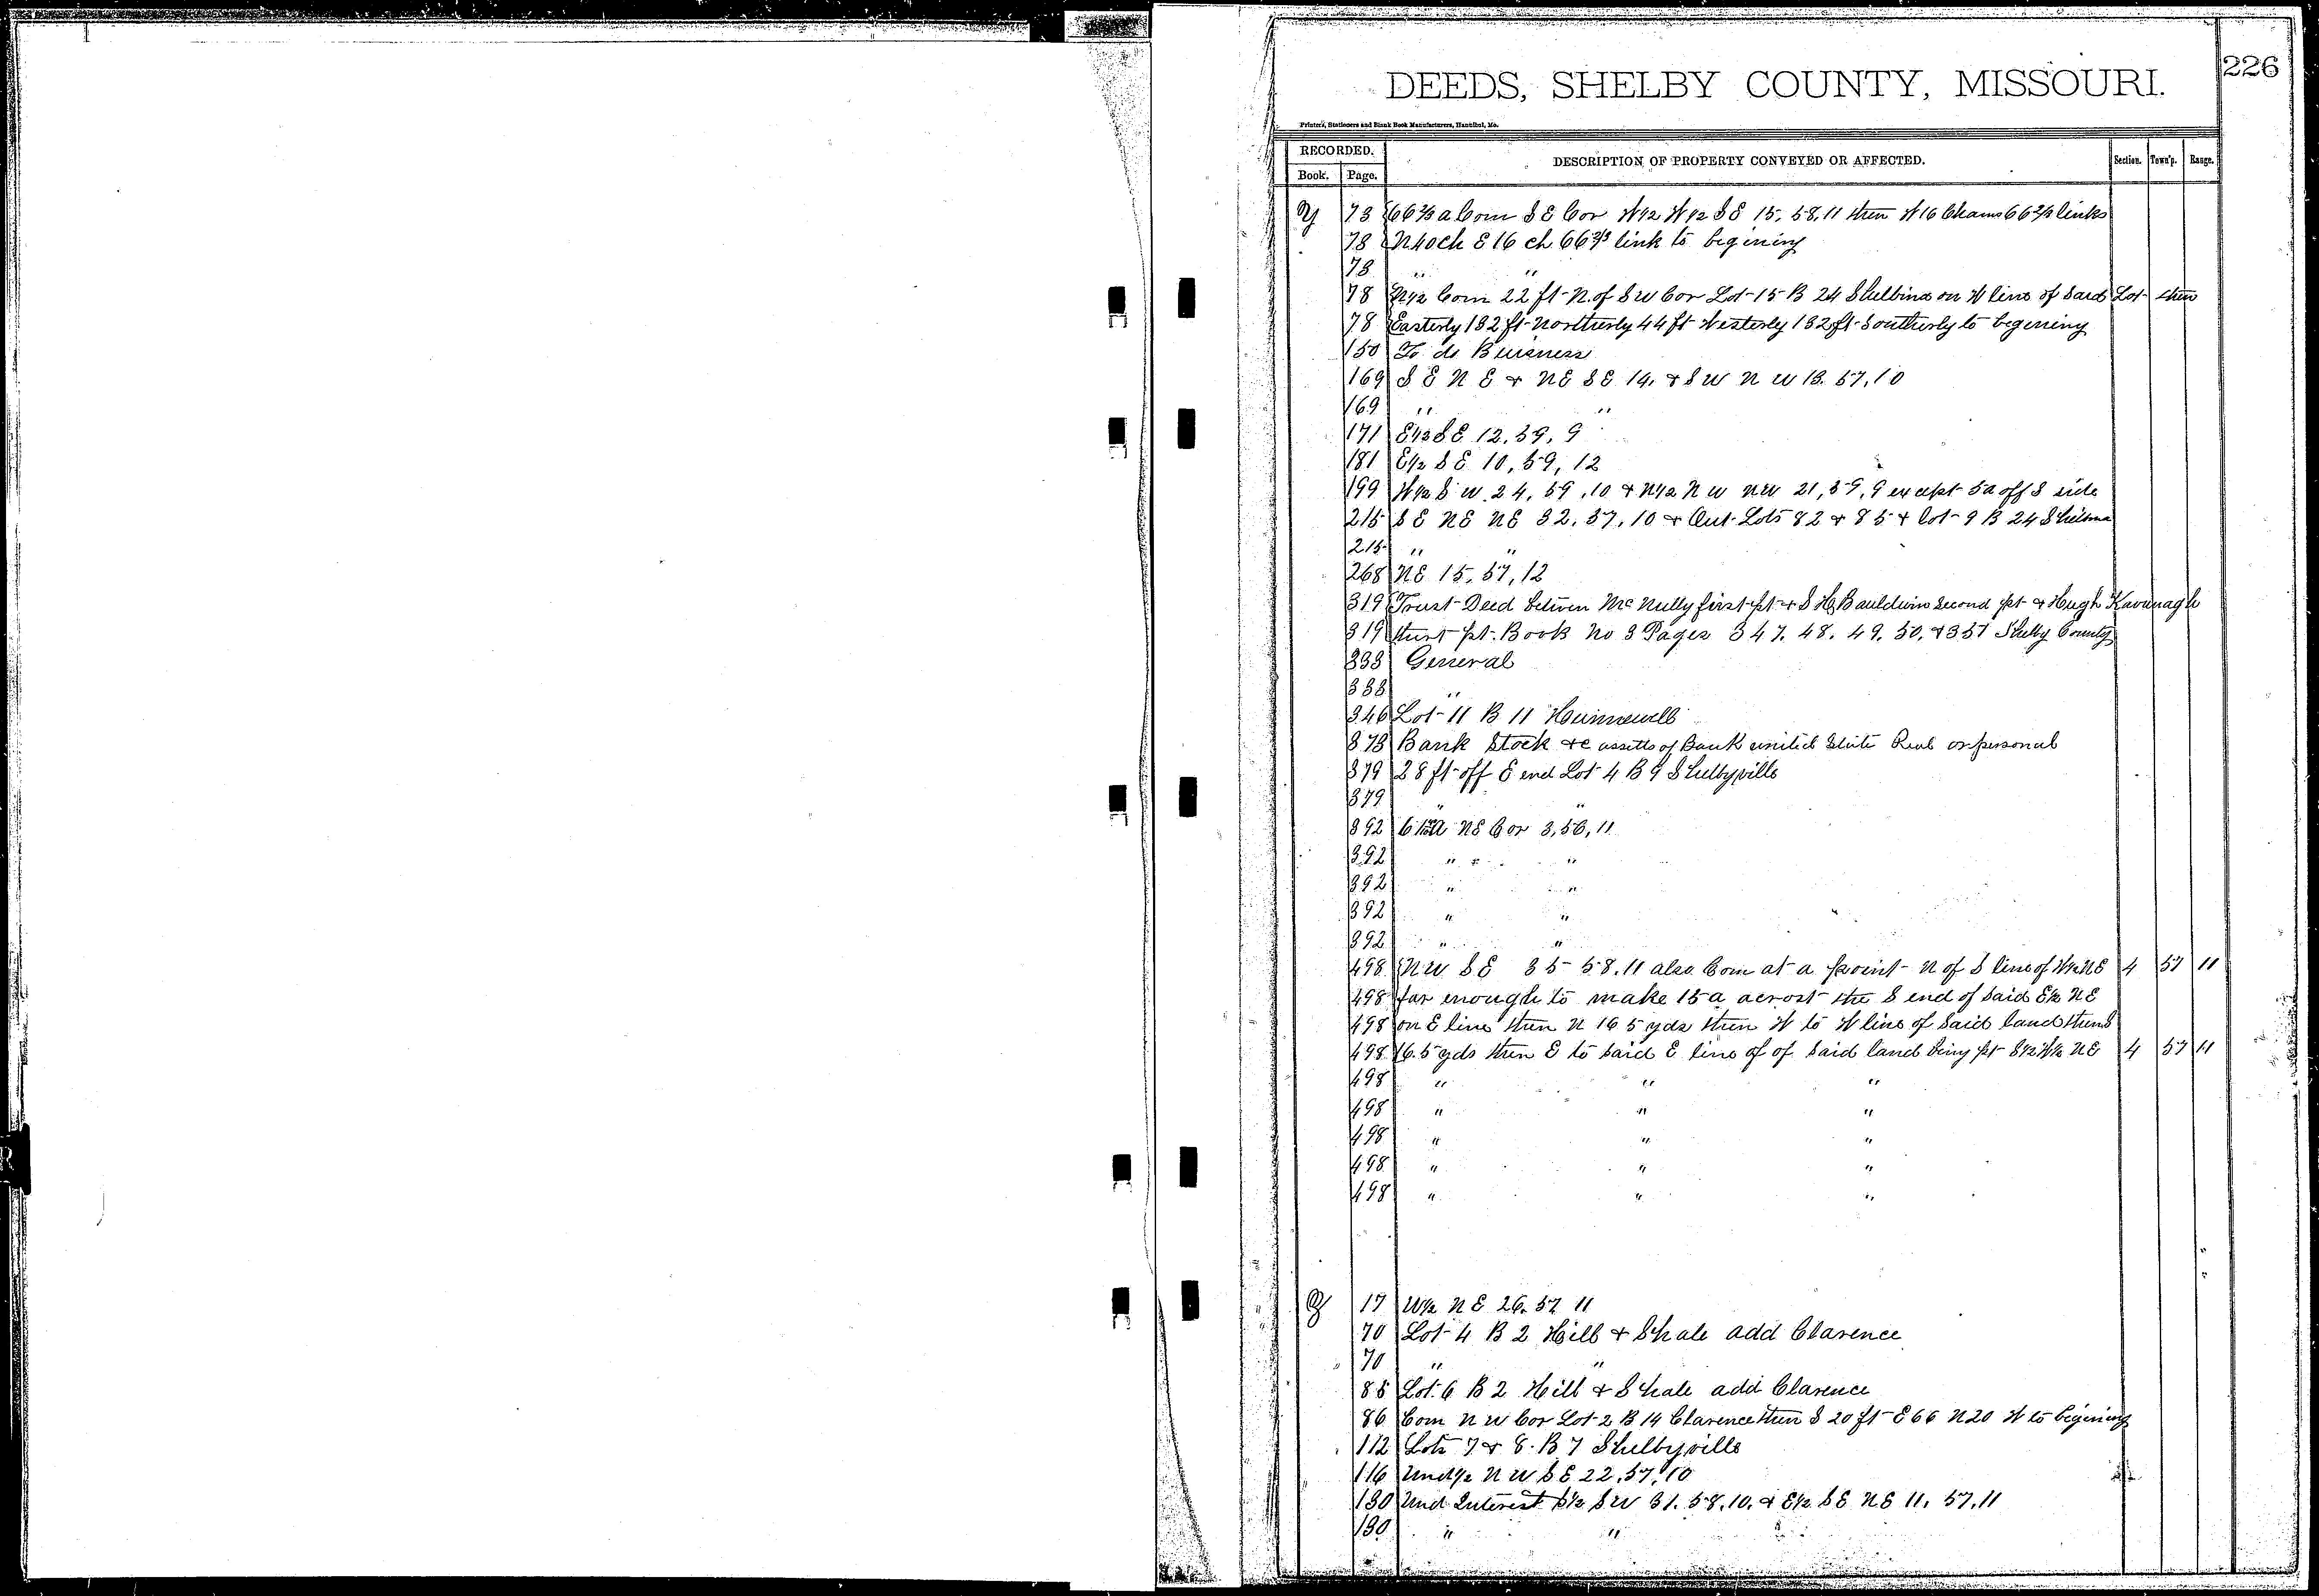 226
DEEDS, SHELBY COUNTY, MISSOURI.
Printers, Stationers and Blank Book Manufacturers, Hannibal, Mo.
RECORDED.
Book. Page. DESCRIPTION OF PROPERTY CONVEYED OR AFFECTED. Section. Town'p. Range.
Y 78 66 2/3 a Com S E Cor W 1/2 W 1/2 S E 15. 58. 11 then W 16 Chains 66 2/3 links
78 N 40 ch E 16 ch 66 2/3 link to begining
78 " "
78 N 1/2 Com 22 ft N. of S W Cor Lot 15 B 24 Shelbina on W line of Said Lot then
78 Easterly 132 ft Northerly 44 ft Westerly 132 ft Southerly to begening
150 To do Buisness
169 S E N E & N E S E 14. & S W N W 13. 57. 10
169 " "
171 E 1/2 S E 12. 59. 9
181 E 1/2 S E 10, 59, 12
199 W 1/2 S W 24, 59, 10 & N 1/2 N W N W 21, 59, 9 except 5a off S side
215 S E N E N E 32. 57. 10 & Out Lots 82 & 85 & lot 9 B 24 Shelbina
215 " "
268 N E 15. 57, 12
319 Trust Deed between McNully first pt & S H Bauldwin Second pt & Hugh Kavanagh
319 pt. Book No 3 Pages 347. 48. 49. 50. & 351 Shelby County
333 General
333 "
346 Lot 11 B 11 Hunnewell
373 Bank Stock &c assetts of Bank united State Real or personal
379 28 ft off E end Lot 4 B 9 Shelbyville
379 " "
392 N E Cor 3, 56, 11
392 " "
392 " "
392 " "
392 " "
498 N W S E 35 58. 11 also Com at a point N of S line of W 1/2 N E 4 57 11
498 far enough to make 15 a acrost the S end of Said E 1/2 N E
498 on E line then N 165 yds then W to W line of Said land then S
498 165 yds then E to Said E line of of Said land being pt S 1/2 W 1/2 N E 4 57 11
498 " " "
498 " " "
498 " " "
498 " " "
498 " " "
Z 17 W 1/2 N E 26. 57 11
70 Lot 4 B 2 Hill & Shale add Clarence
70 " "
85 Lot 6 B 2 Hill & Shale add Clarence
86 Com N W Cor Lot 2 B 14 Clarence then S 20 ft E 66 N 20 W to begining
112 Lots 7 & 8. B 7 Shelbyville
116 Und 1/2 N W S E 22, 57, 10
130 Und Interest S 1/2 S W 31. 58. 10. & E 1/2 S E N E 11. 57. 11
130 " "